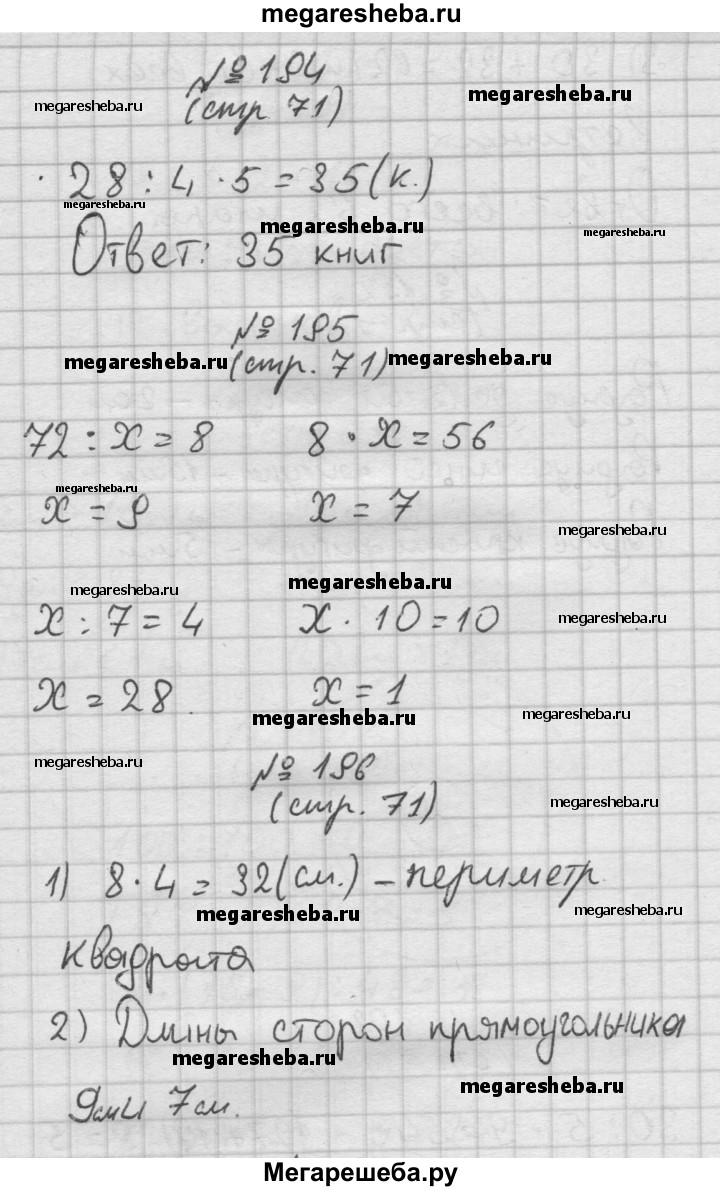 megaresheba.ru
№ 194
megaresheba.ru (стр 71) megaresheba.ru
28 : 4 · 5 = 35 (к.)
megaresheba.ru megaresheba.ru megaresheba.ru
Ответ: 35 книг
№ 195
megaresheba.ru (стр. 71) megaresheba.ru
72 : x = 8 8 · x = 56
megaresheba.ru
x = 9 x = 7
megaresheba.ru
megaresheba.ru megaresheba.ru
x : 7 = 4 x · 10 = 10 megaresheba.ru
x = 28 x = 1
megaresheba.ru megaresheba.ru
megaresheba.ru № 196
(стр. 71) megaresheba.ru
1) 8 · 4 = 32 (см.) – периметр
megaresheba.ru megaresheba.ru
квадрата
2) Длины сторон прямоугольника
megaresheba.ru megaresheba.ru
9см и 7см.
Мегарешеба.ру